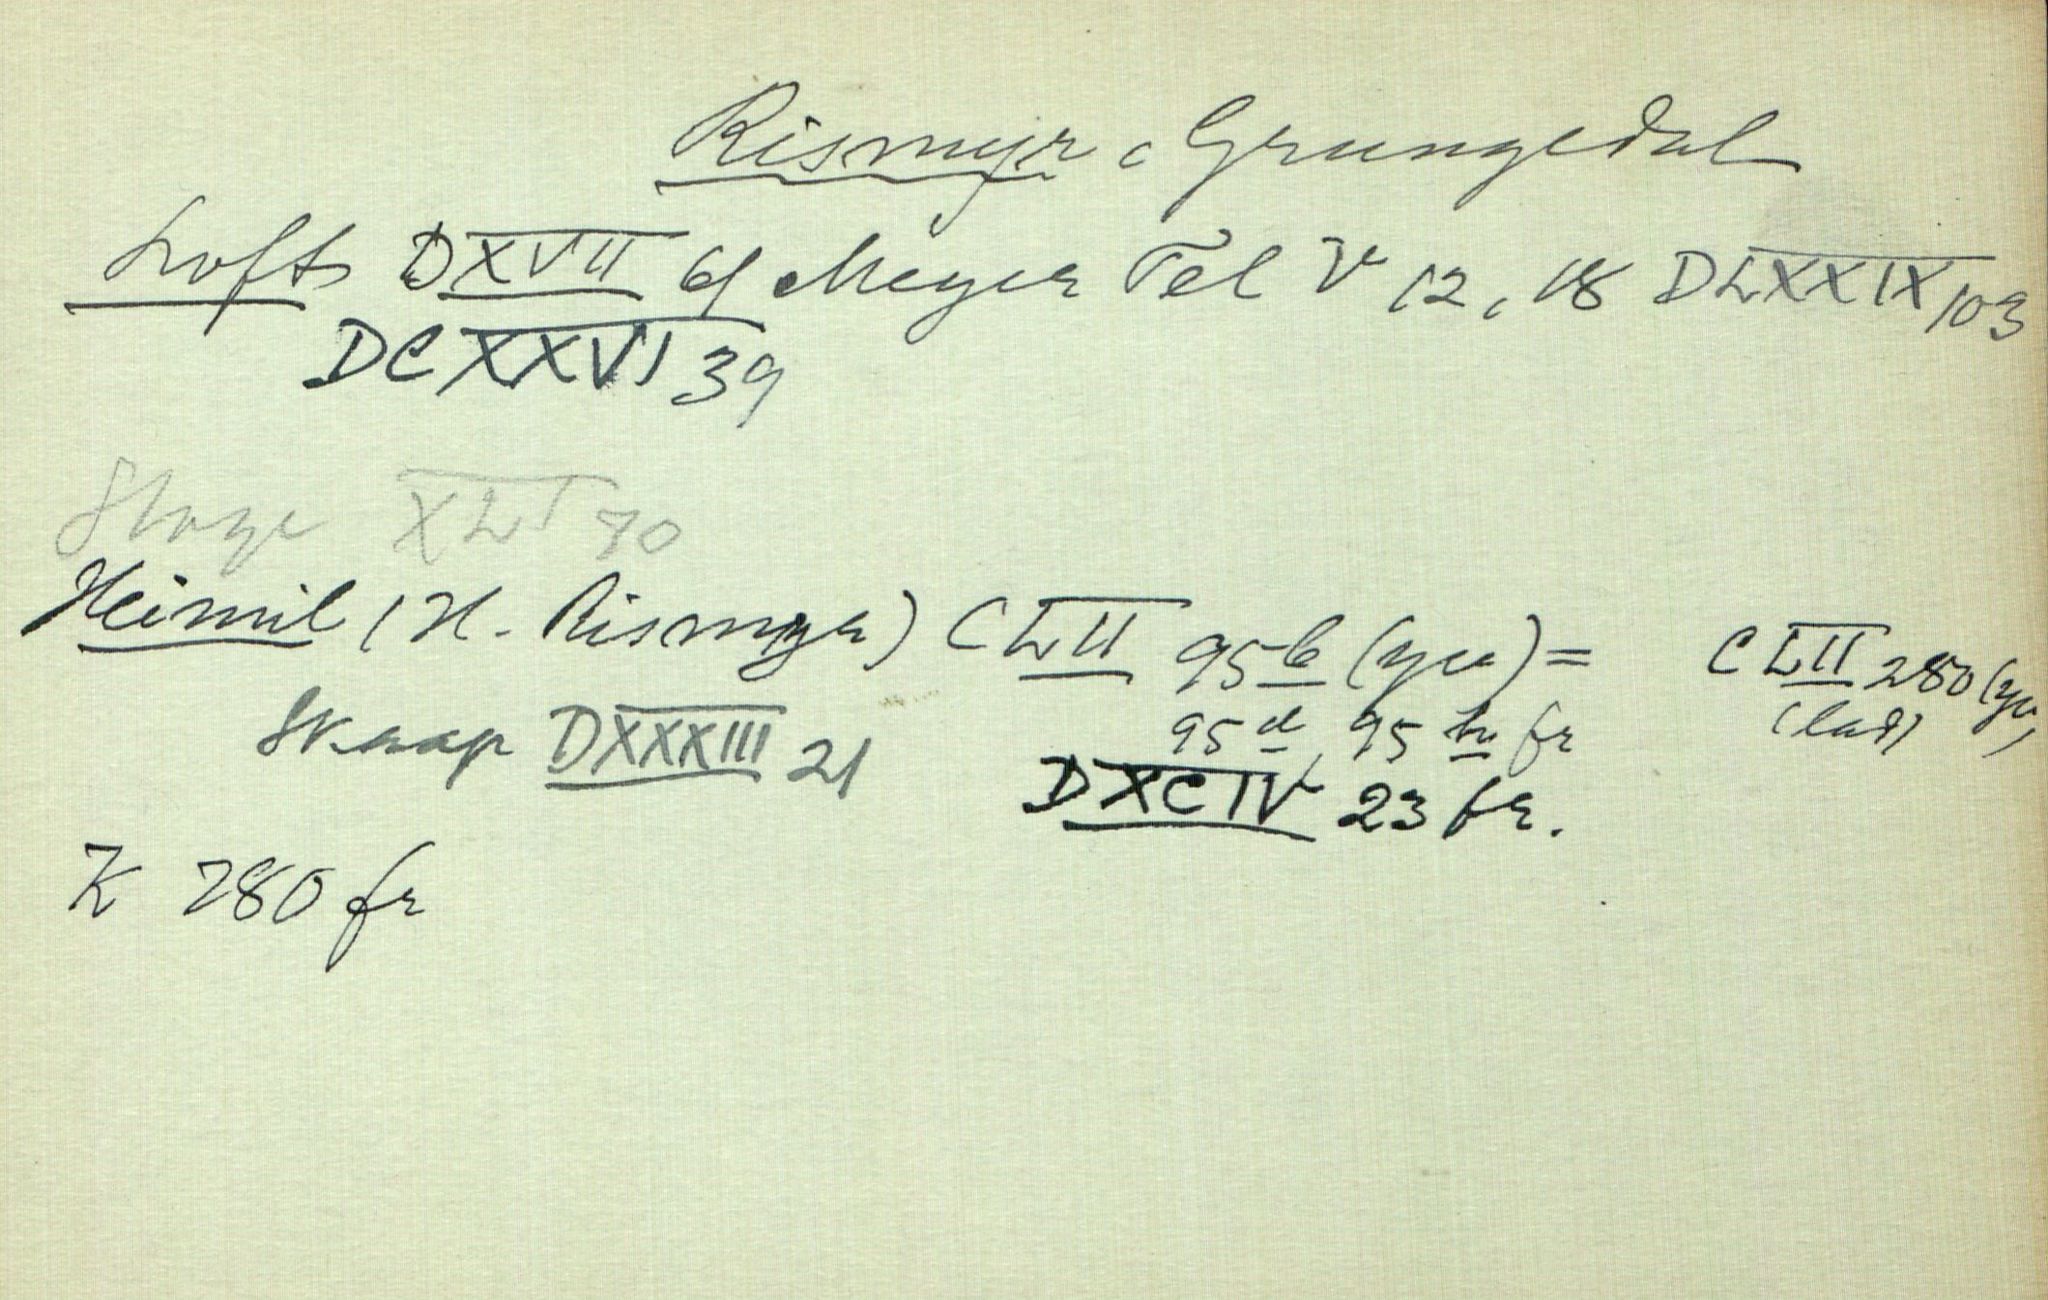 Rismyr i Grungedal
Lofts DXVII 61 Meyer Tel V 12, 18 DLXXIX 103
DCXXVI 39
Stoge XLI 70
Heimil (H. Rismyr) CLII 95 b (yu) = CLII 280 (yu)
95 d, 95 fr (lad)
Skaap DXXXIII 21
DXCIV 23 fr.
K 280 fr